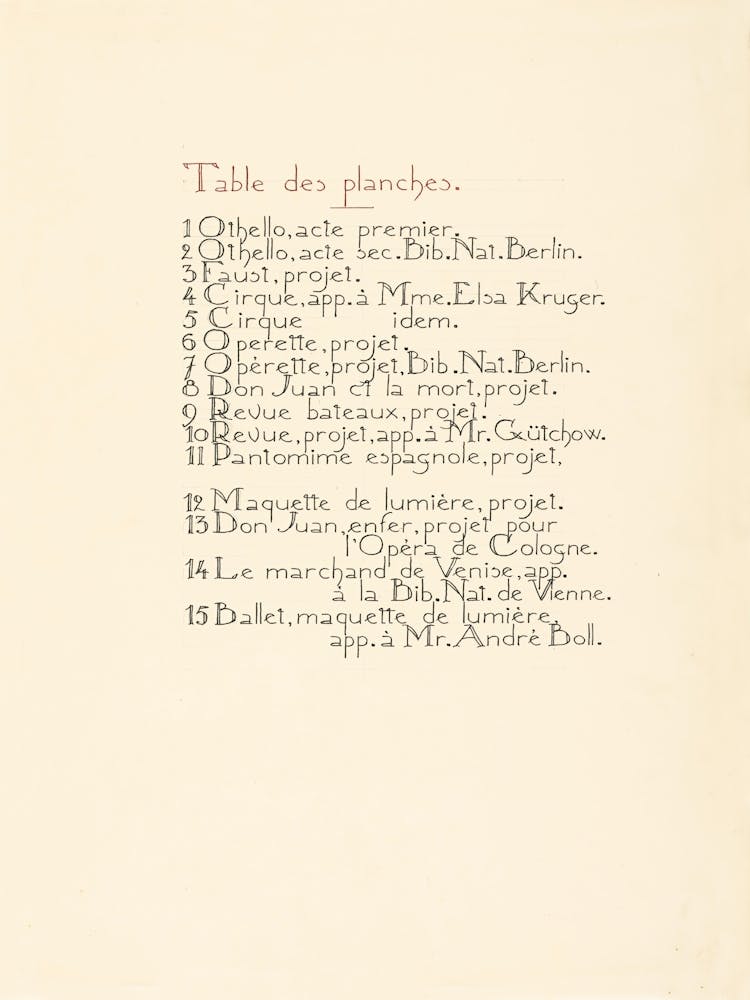 Table des planches.
1 Othello, acte premier.
2 Othello, acte sec. Bib. Nat. Berlin.
3 Faust, projet.
4 Cirque, app. à Mme. Elsa Kruger.
5 Cirque idem.
6 Operette, projet.
7 Opèrette, projet, Bib. Nat. Berlin.
8 Don Juan et la mort, projet.
9 Revue bateaux, projet.
10 Revue, projet, app. à Mr. Gütchow.
11 Pantomime espagnole, projet,
12 Maquette de lumière, projet.
13 Don Juan, enfer, projet pour
l'Opèra de Cologne.
14 Le marchand de Venise, app.
à la Bib. Nat. de Vienne.
15 Ballet, maquette de lumière,
app. à Mr. Andrè Boll.